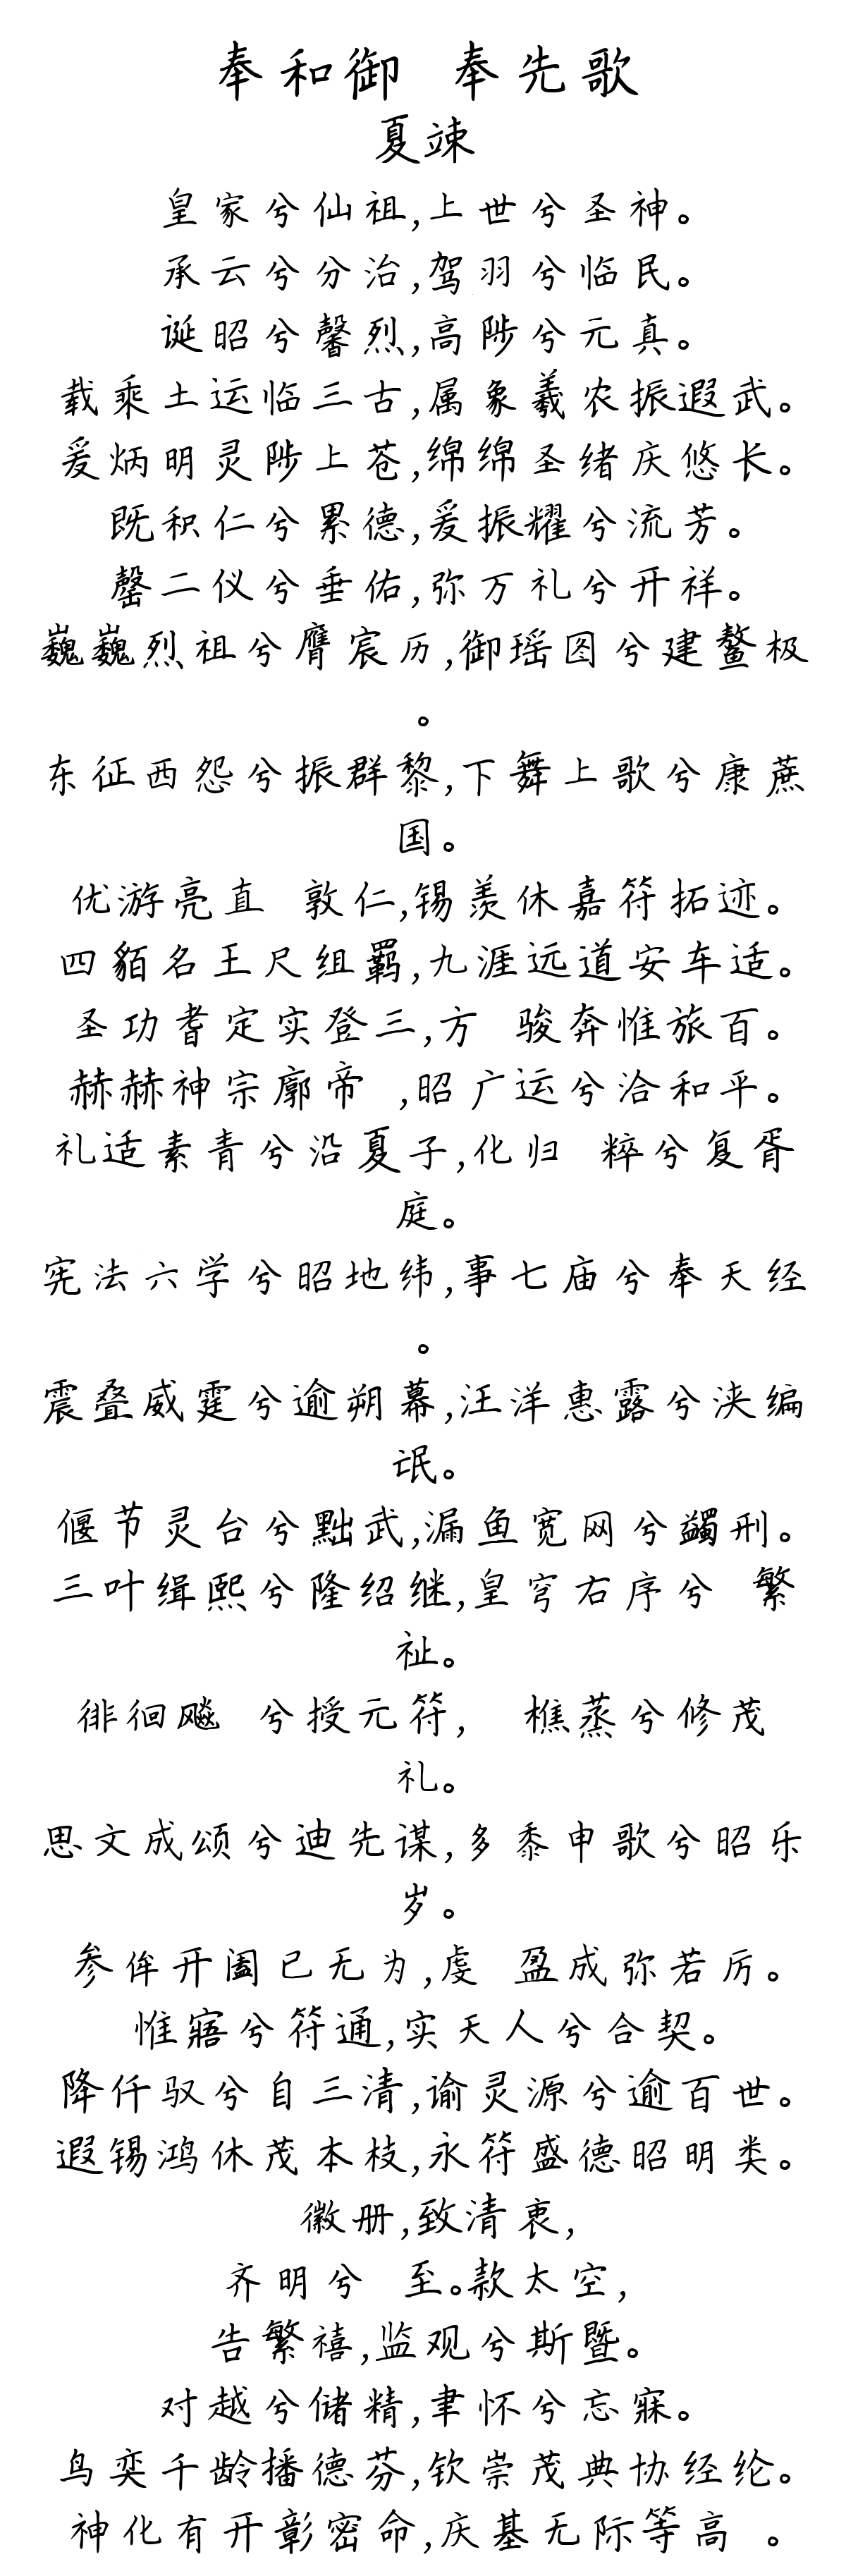 奉和御 奉先歌
夏竦
皇家兮仙祖,上世兮圣神。
承云兮分治,驾羽兮临民。
诞昭兮馨烈,高陟兮元真。
载乘土运临三古,属象羲农振遐武。
爰炳明灵陟上苍,绵绵圣绪庆悠长。
既积仁兮累德,爰振耀兮流芳。
罄二仪兮垂佑,弥万礼兮开祥。
巍巍烈祖兮膺宸历,御瑶图兮建鳌极
。
东征西怨兮振群黎,下舞上歌兮康蔗
国。
优游亮直 敦仁,锡羡休嘉符拓迹。
四貊名王尺组羁,九涯远道安车适。
圣功耆定实登三,方 骏奔惟旅百。
赫赫神宗廓帝 ,昭广运兮洽和平。
礼适素青兮沿夏子,化归 粹兮复胥
庭。
宪法六学兮昭地纬,事七庙兮奉天经
。
震叠威霆兮逾朔幕,汪洋惠露兮浃编
氓。
偃节灵台兮黜武,漏鱼宽网兮蠲刑。
三叶缉熙兮隆绍继,皇穹右序兮 繁
祉。
徘徊飚 兮授元符, 樵蒸兮修茂
礼。
思文成颂兮迪先谋,多黍申歌兮昭乐
岁。
参侔开阖已无为,虔 盈成弥若厉。
惟寤兮符通,实天人兮合契。
降仟驭兮自三清,谕灵源兮逾百世。
遐锡鸿休茂本枝,永符盛德昭明类。
徽册,致清衷,
齐明兮 至。款太空,
告繁禧,监观兮斯暨。
对越兮储精,聿怀兮忘寐。
鸟奕千龄播德芬,钦崇茂典协经纶。
神化有开彰密命,庆基无际等高 。